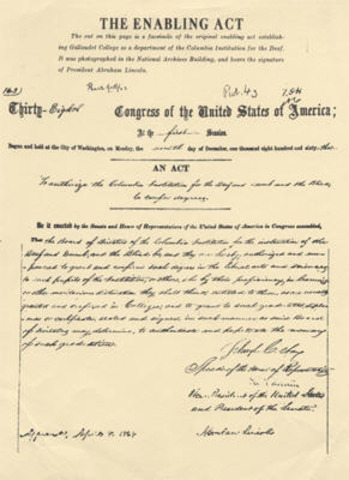 THE ENABLING ACT
The cut on this page is a facsimile of the original enabling act establish-
ing Gallaudet College as a department of the Columbia Institution for the Deaf.
It was photographed in the National Archives Building, and bears the signature
of President Abraham Lincoln.
Pub. 43
Thirty-Eighth Congress of the United States of America;
At the first Session,
Begun and held at the City of Washington, on Monday, the seventh day of December, one thousand eight hundred and sixty-three
AN ACT
To authorize the Columbia Institution for the Deaf and Dumb and the Blind
to confer degrees.
Be it enacted by the Senate and House of Representatives of the United States of America in Congress assembled,
That the Board of Directors of the Columbia Institution for the instruction of the
Deaf and Dumb, and the Blind, be and they are hereby, authorized and em-
powered to grant and confirm such degrees in the liberal arts and sciences
to such pupils of the Institution, or others, who by their proficiency in learning
or other meritorious distinction they shall think entitled to them as are usually
granted and conferred in Colleges; and to grant to such graduates diplo-
mas or certificates, sealed and signed in such manner as said Board
of directors may determine, to authenticate and perpetuate the memory
of such graduation.
Schuyler Colfax
Speaker of the House of Representatives
H. Hamlin
Vice President of the United States
and President of the Senate.
Approved, April 8, 1864 Abraham Lincoln